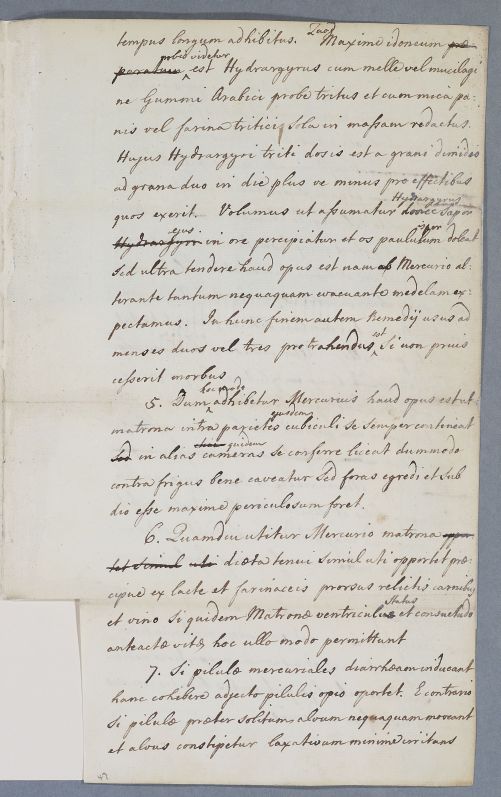 tempus longum adhibitus. Quod Maxime idoneum præ
paratum nobis videtur est Hydrargyrus cum melle vel mucilagi
ne Gummi Arabici probe tritus et cum mica pa-
nis vel farina tritici sola in massam redactus.
Hujus Hydrargyri triti dosis est a grani dimidio
ad grana duo in die plus ve minus pro effectibus
quos exerit. Volumus ut assumatur Hydrargyrus donec sapor
Hydrargyri ejus in ore percipiatur et os paululum doleat
sed ultra tendere haud opus est nam a Mercurio al-
terante tantum nequaquam evacuante medelam ex-
pectamus. In hunc finem autem Remedij usus ad
menses duos vel tres protrahendus est, Si non prius
cesserit morbus
5. Dum hoc modo adhibetur Mercurius haud opus est ut
matrona intra parietes cubiculi se semper contineat
sed in alias quidem cameras se conferre liceat dummodo
contra frigus bene caveatur sed foras egredi et sub
dio esse maxime periculosum foret.
6. Quamdiu utitur Mercurio matrona oppor
tet simul uti diæta tenui simul uti opportet præ-
cipue ex lacte et farinaceis prorsus relictis carnibus
et vino si quidem Matronæ ventriculi status et consuetudo
anteactæ vitæ hoc ullo modo permittunt
7. Si pilulæ mercuriales diarrhæam inducant
hanc cohibere adjecto pilulis opio oportet. E contrario
si pilulæ præter solitum alvum nequaquam moveant
et alvus constipetur laxativum minime irritans
47